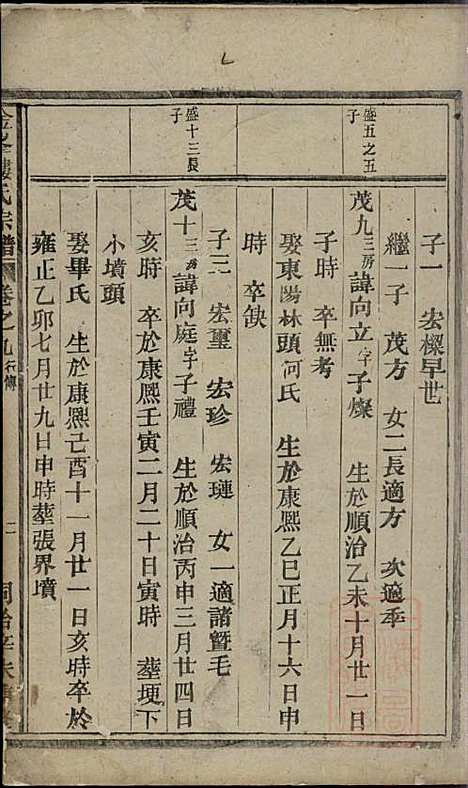 子一 宏樑早世
繼一子 茂方 女二長適方 次適季
盛五之五子
茂九三房諱向立字子燦 生於順治乙未十月廿一日
子時 卒無考
娶東陽林頭何氏 生於康熙乙巳正月十六日申
時 卒缺
子三 宏璽 宏珍 宏璉 女一適諸暨毛
盛十三長子
茂十三房諱向庭字子禮 生於順治丙申三月廿四日
亥時 卒於康熙壬寅二月二十日寅時 塟埂下
小墳頭
娶畢氏 生於康熙己酉十一月廿一日亥時卒於
雍正乙卯七月廿九日申時塟張界墳
樓氏宗譜 卷之九行傳 二 同治辛未